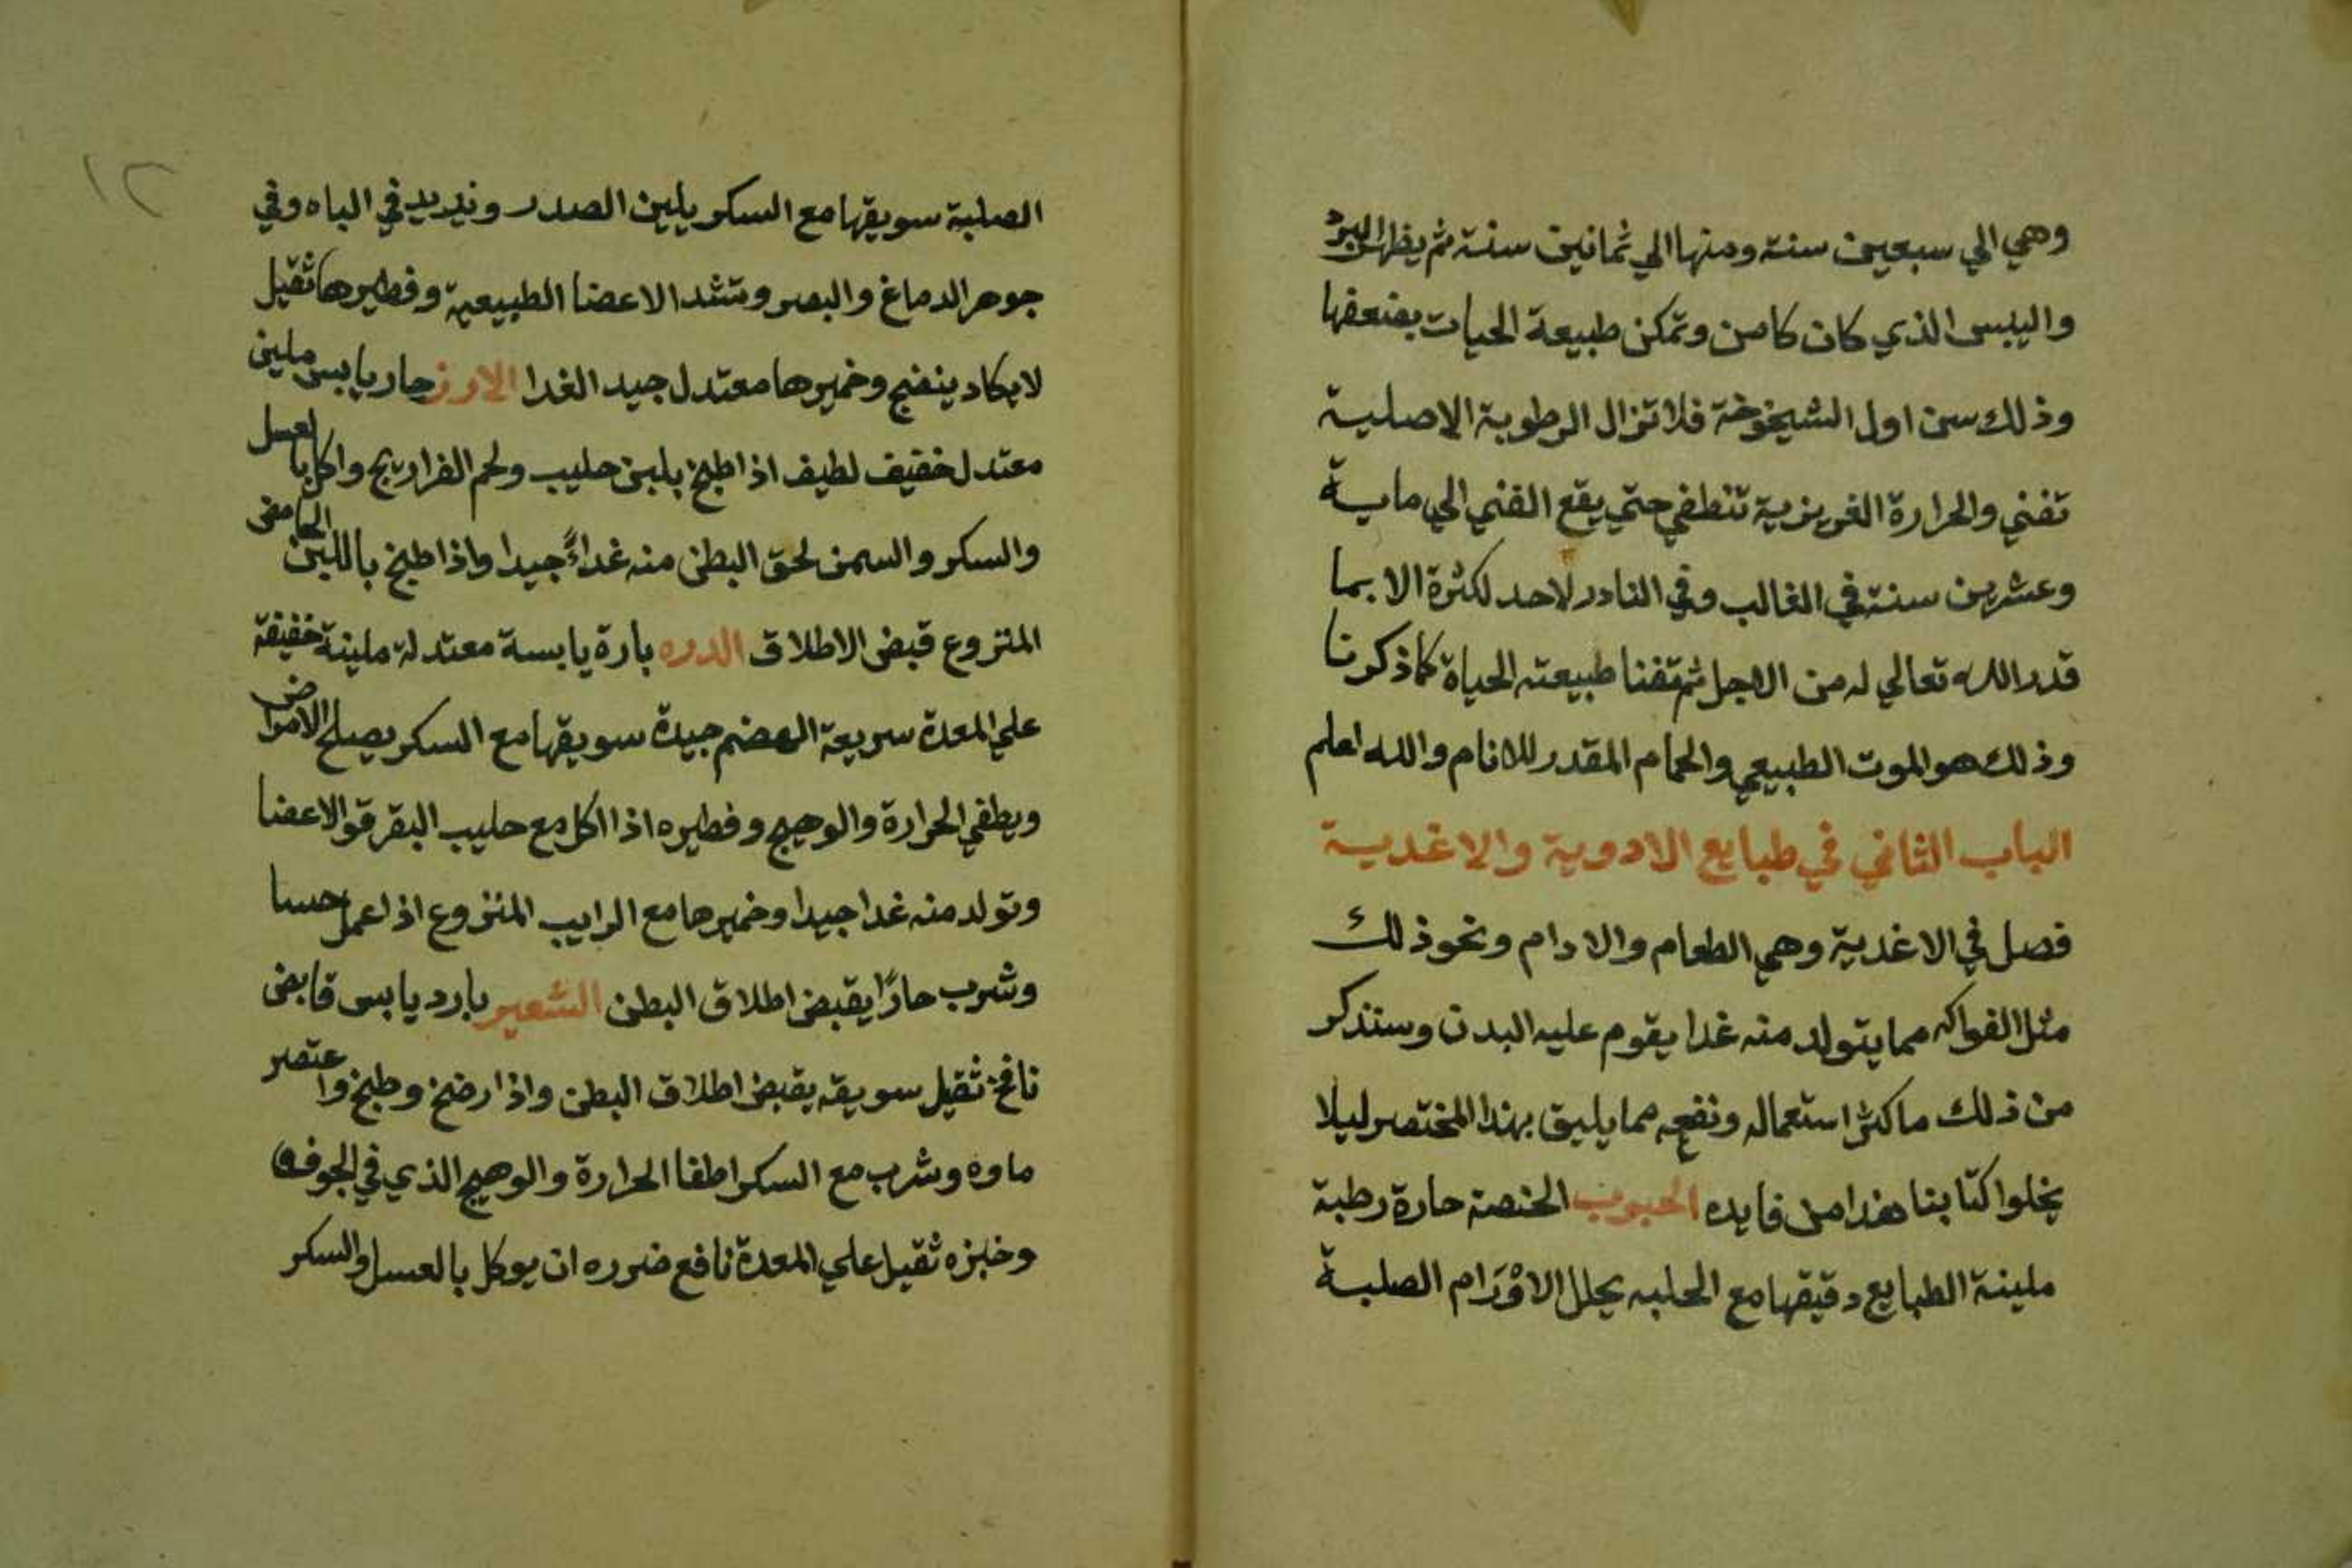 وهي الي سبعين سنة ومنها الي ثمانين سنة ثم يظهر البرد
واليبس الذي كان كامن وتمكن طبيعة الحيات بضعفها
وذلك سن اول الشيخوخة فلا تزال الرطوبة الاصلية
تفني والحرارة الغريزية تنطفي حتي يقع الفني الي ماية
وعشرين سنة في الغالب وفي النادر لاحد لكثرة الا بما
قدر الله تعالي له من الاجل ثم تفنا طبيعته الحياة كما ذكرنا
وذلك هو الموت الطبيعي والحمام المقدر للانام والله اعلم
الباب الثاني في طبايع الادوية والاغدية
فصل في الاغدية وهي الطعام والادام ونحو ذلك
مثل الفواكه مما يتولد منه غدا يقوم عليه البدن وسنذكر
من ذلك ما كثر استعماله ونفعه مما يليق بهذا المختصر ليلا
يخلوا كتابنا هذا من فايده الحبوب الحنصة حارة رطبة
ملينة الطبايع دقيقها مع الحلبه يحلل الاوْرَام الصلبة
١٢
الصلبة سويقها مع السكر يلين الصدر ويزيد في الباه وفي
جوهر الدماغ والبصر وتشد الاعضا الطبيعية وفطيرها ثقيل
لايكاد ينضج وخميرها معتدل جيد الغدا الارز حار يابس ملين
معتدل خفيف لطيف اذا طبخ بلبن حليب ولحم الفراريج واكل بالعسل
والسكر والسمن لحق البطن منه غداءً جيدا واذا طبخ باللبن الحامض
المنزوع قبض الاطلاق الدره بارة يابسة معتدلة ملينة خفيفة
علي المعدة سريعة الهضم جيدة سويقها مع السكر يصلح الامراض
ويطفي الحرارة والوهيج وفطيره اذا اكل مع حليب البقر قوا الاعضا
وتولد منه غدا جيدا وخميرها مع الرايب المنزوع اذا عمل حسا
وشرب حارًا يقبض اطلاق البطن الشعير بارد يابس قابض
نافخ ثقيل سويقه يقبض اطلاق البطن واذا رضخ وطبخ واعتصر
ماوه وشرب مع السكر اطفا الحرارة والوهيج الذي في الجوف
وخبزه ثقيل علي المعدة نافع ضرره ان يوكل بالعسل والسكر